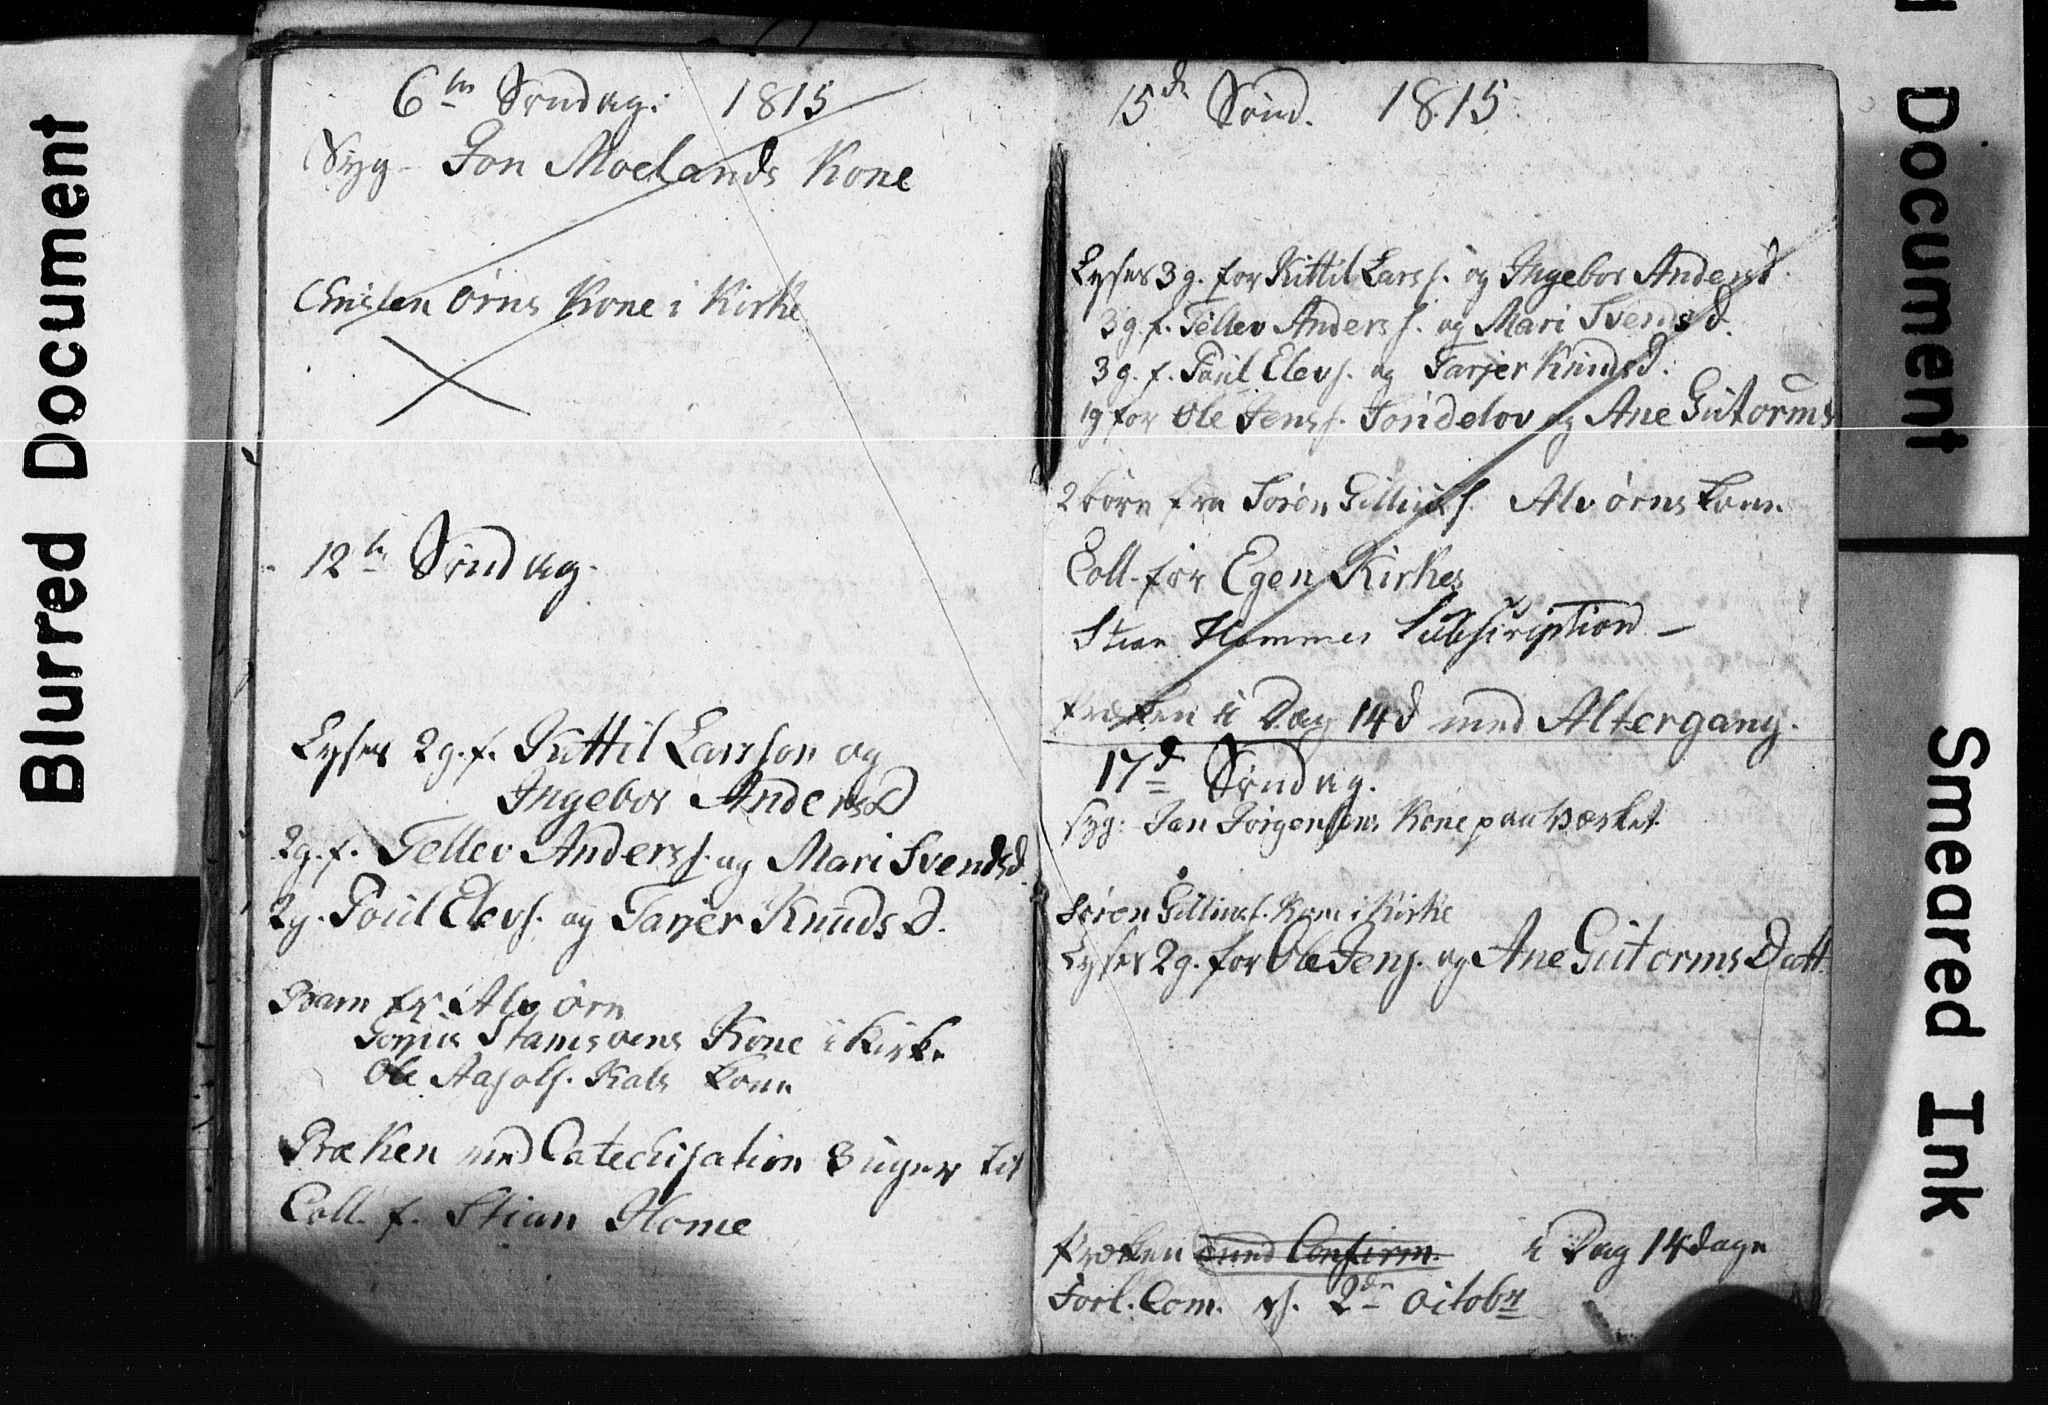 Blurred Document
6te Søndag. 1815
Syg - Jon Moelands Kone
Christen Ørns Kone i Kirke
12te Søndag.
Lyses 2 g. f. Kittil Larsson og
Ingebor AndersD
2g. f. Tellev Anders s. og Mari Svendsd.
2g. Poul Elevs. og Tarjer Knuds D.
Barn fr. Alv Ørn
Kone i Kirke
Ole Kone
Præken med Catechisation 3 uger til
Coll. f. Stian Home
15de Sønd. 1815.
Lyses 3 g. for Kittil Lars s. og Ingebor Andersd.
3 g. f. Tellev Anders s. og Mari Svendsd.
3 g. f. Poul Elevs. og Tarjer Knudsd.
1g for Ole Jens s. Tondelov og Ane Gutorms
2 børn fra Søren Alv Ørns Kone
Coll. for Egen Kirkes
Stian Hommes Subscription -
Præken i Dag 14 d med Altergang.
17de Søndag.
Syg: Jan Jörgensens Kone paa Værket
Søren Kone i Kirke
Lyses 2 g. for Ole Jens. og Ane Gutorms Datt.
Præken med Confirm. i Dag 14 dage
Forl. Com. 2de Octobr
Document
Smeared Ink